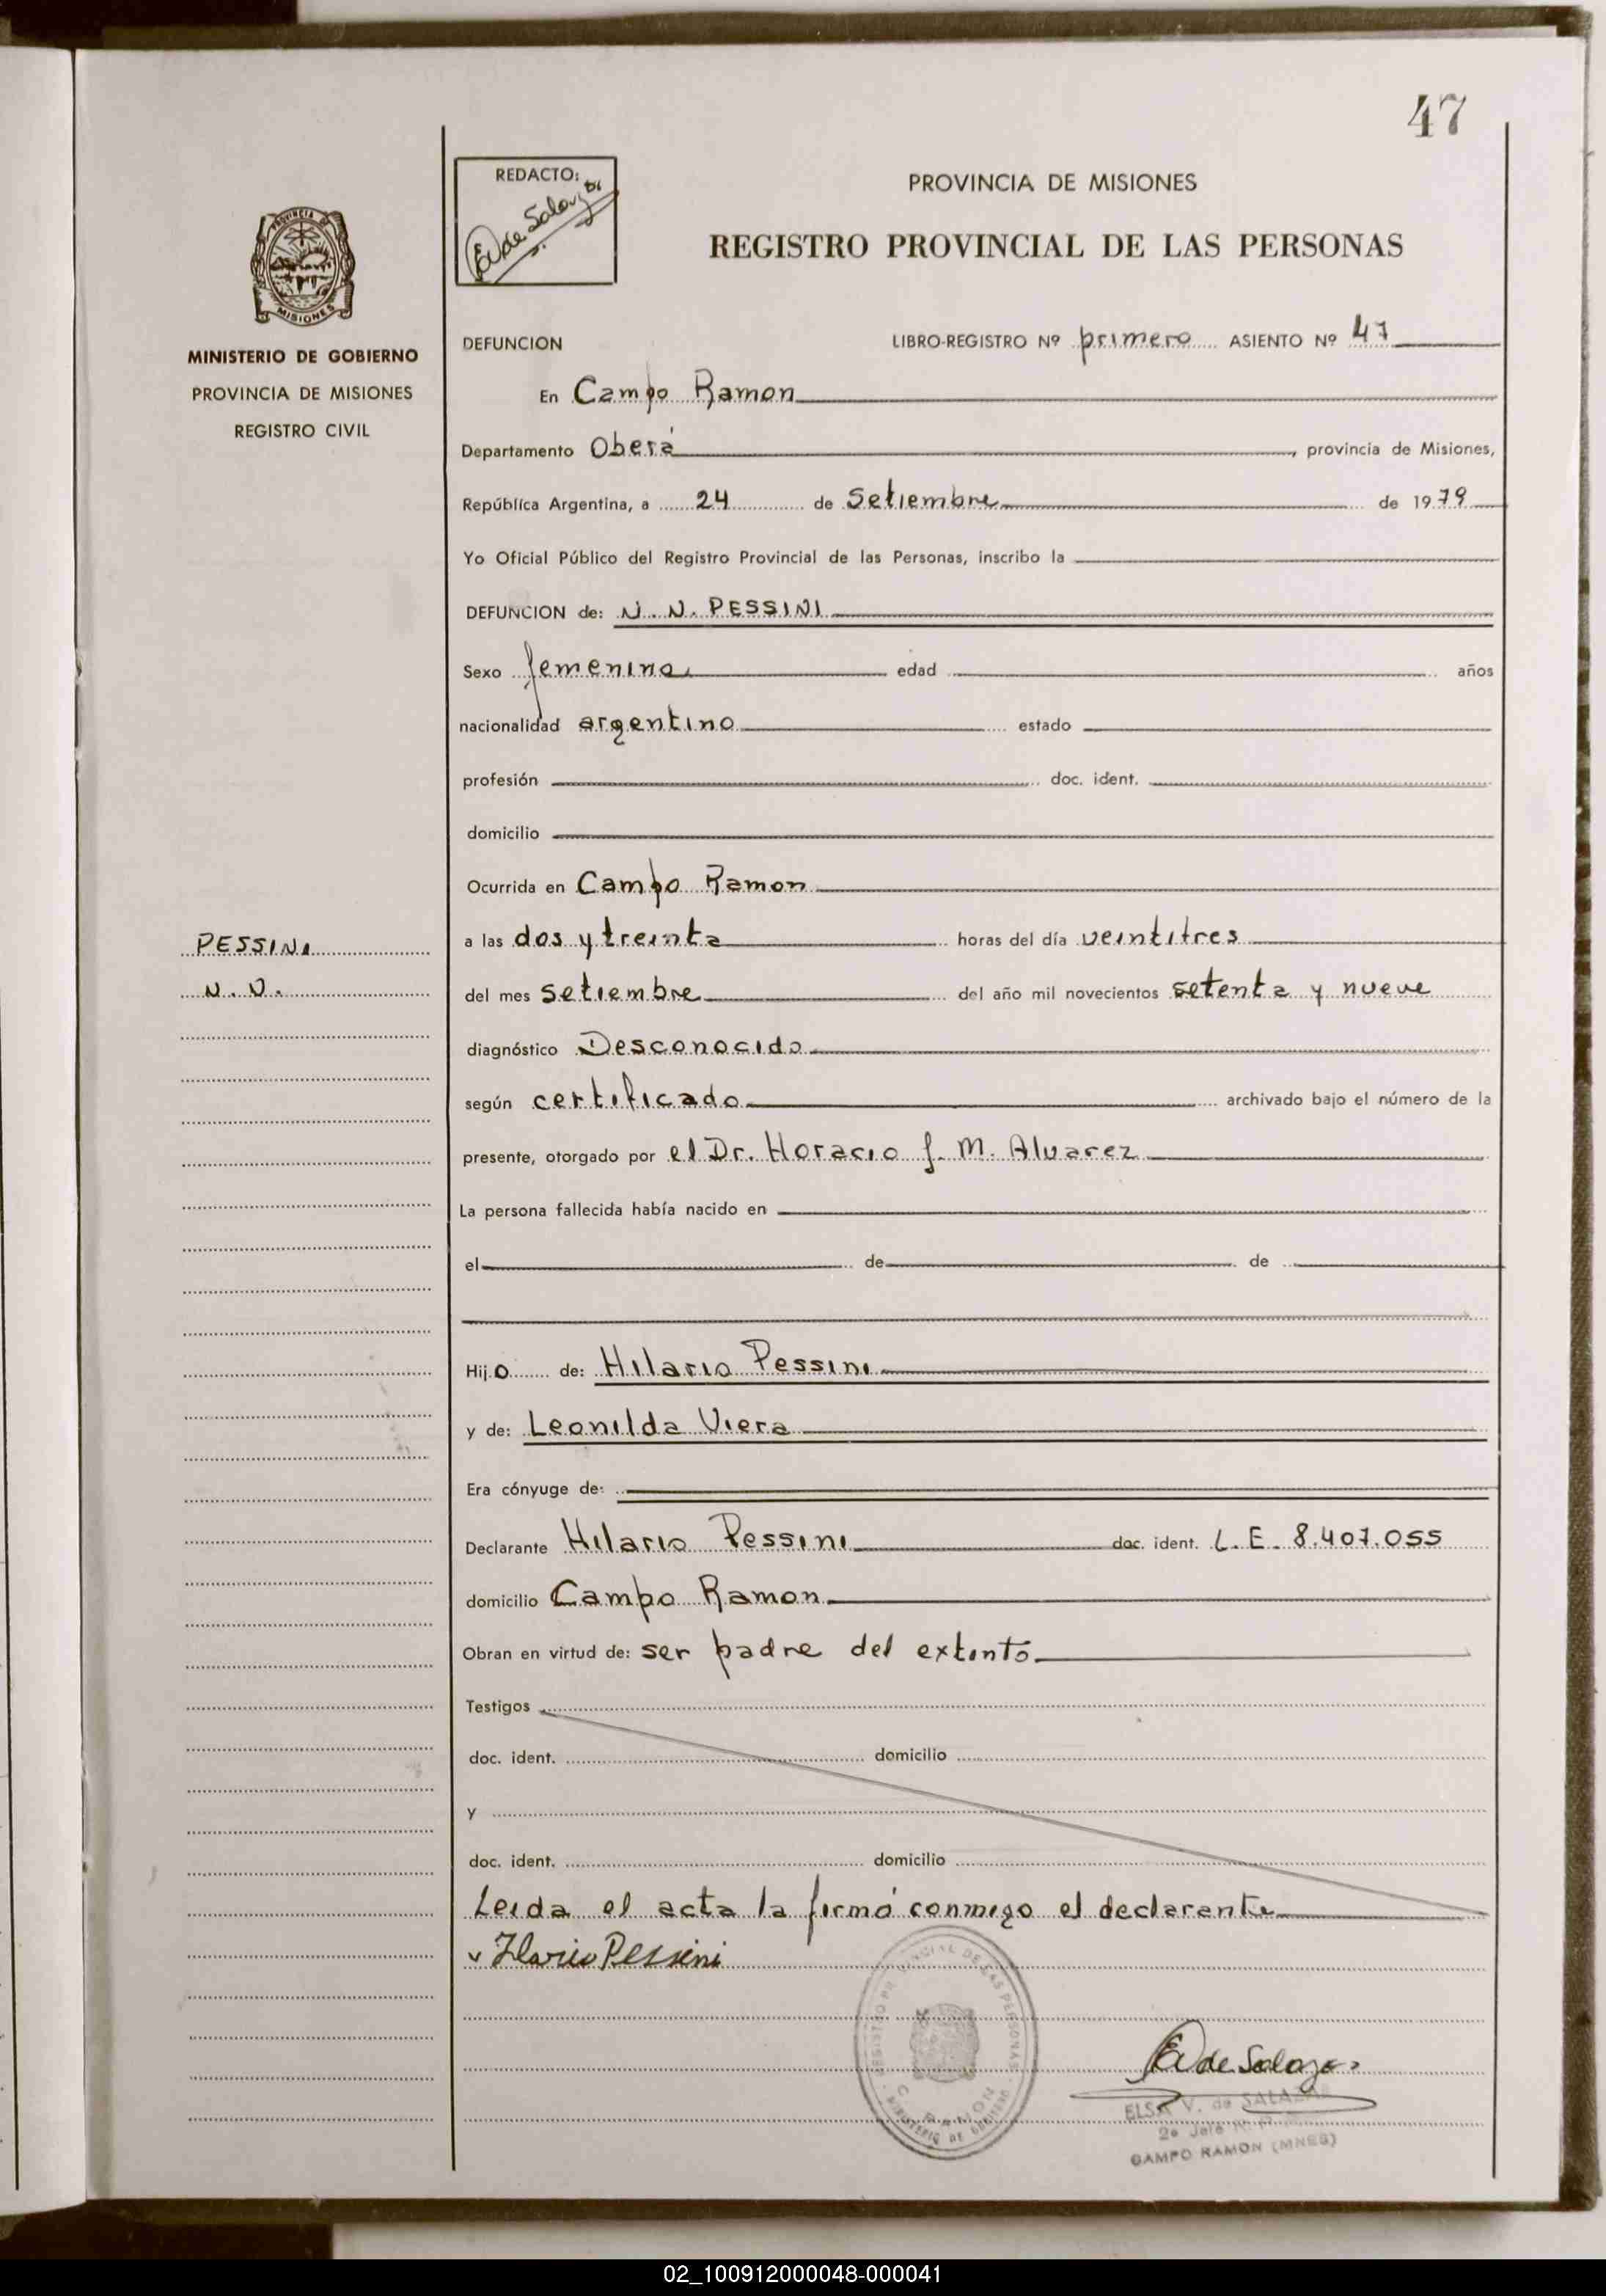 47
REDACTO:
E V de Salazar
PROVINCIA DE MISIONES
REGISTRO PROVINCIAL DE LAS PERSONAS
PROVINCIA DE
MISIONES
MINISTERIO DE GOBIERNO
PROVINCIA DE MISIONES
REGISTRO CIVIL
DEFUNCION LIBRO-REGISTRO Nº primero ASIENTO Nº 47
En Campo Ramon
Departamento Oberá, provincia de Misiones,
República Argentina, a 24 de Setiembre de 1979
Yo Oficial Público del Registro Provincial de las Personas, inscribo la
DEFUNCION de: N. N. PESSINI
Sexo femenino edad años
nacionalidad argentino estado
profesión doc. ident.
domicilio
Ocurrida en Campo Ramon
PESSINI
N. N.
a las dos y treinta horas del día veintitres
del mes setiembre del año mil novecientos setenta y nueve
diagnóstico Desconocido
según certificado archivado bajo el número de la
presente, otorgado por el Dr. Horacio J. M. Alvarez
La persona fallecida había nacido en
el de de
Hijo de: Hilario Pessini
y de: Leonilda Viera
Era cónyuge de:
Declarante Hilario Pessini doc. ident. L. E. 8.407.055
domicilio Campo Ramon
Obran en virtud de: ser padre del extinto
Testigos
doc. ident. domicilio
y
doc. ident. domicilio
Leida el acta la firmó conmigo el declarante
Ilario Pessini
REGISTRO PROVINCIAL DE LAS PERSONAS
C. RAMON
MINISTERIO DE GOBIERNO
E V de Salazar
ELSA V. de SALAZAR
2º Jefe
CAMPO RAMON (MNES)
02_100912000048-000041